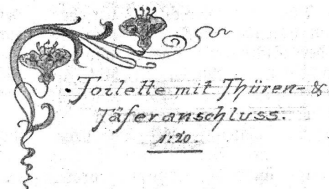 Toilette mit Thüren- &
Täferanschluss.
1:20.